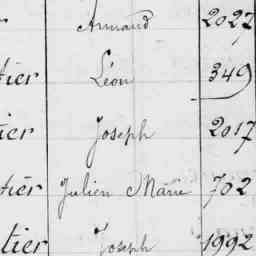 Armand 2027
tier Léon 349
ier Joseph 2017
tier Julien Marie 702
tier Joseph 1992